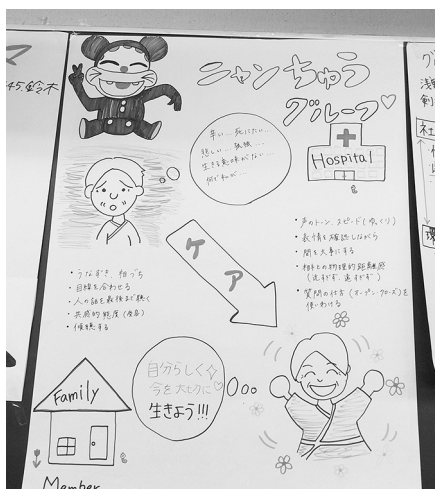 45.鈴木
ニャンちゅう
グループ♡
辛い…死にたい…
悲しい…孤独…
生きる意味がない…
何で私が…
Hospital
・うなずき 相づち
・目線を合わせる
・人の話を最後まで聴く
・共感的態度(座る)
・傾聴する
ケア
・声のトーン、スピード(ゆっくり)
・表情を確認しながら
・間を大事にする
・相手との物理的距離感
(近すぎず、遠すぎず)
・質問の仕方(オープン・クローズ)を
使いわける
Family
自分らしく
今を大切に
生きよう!!!
Member